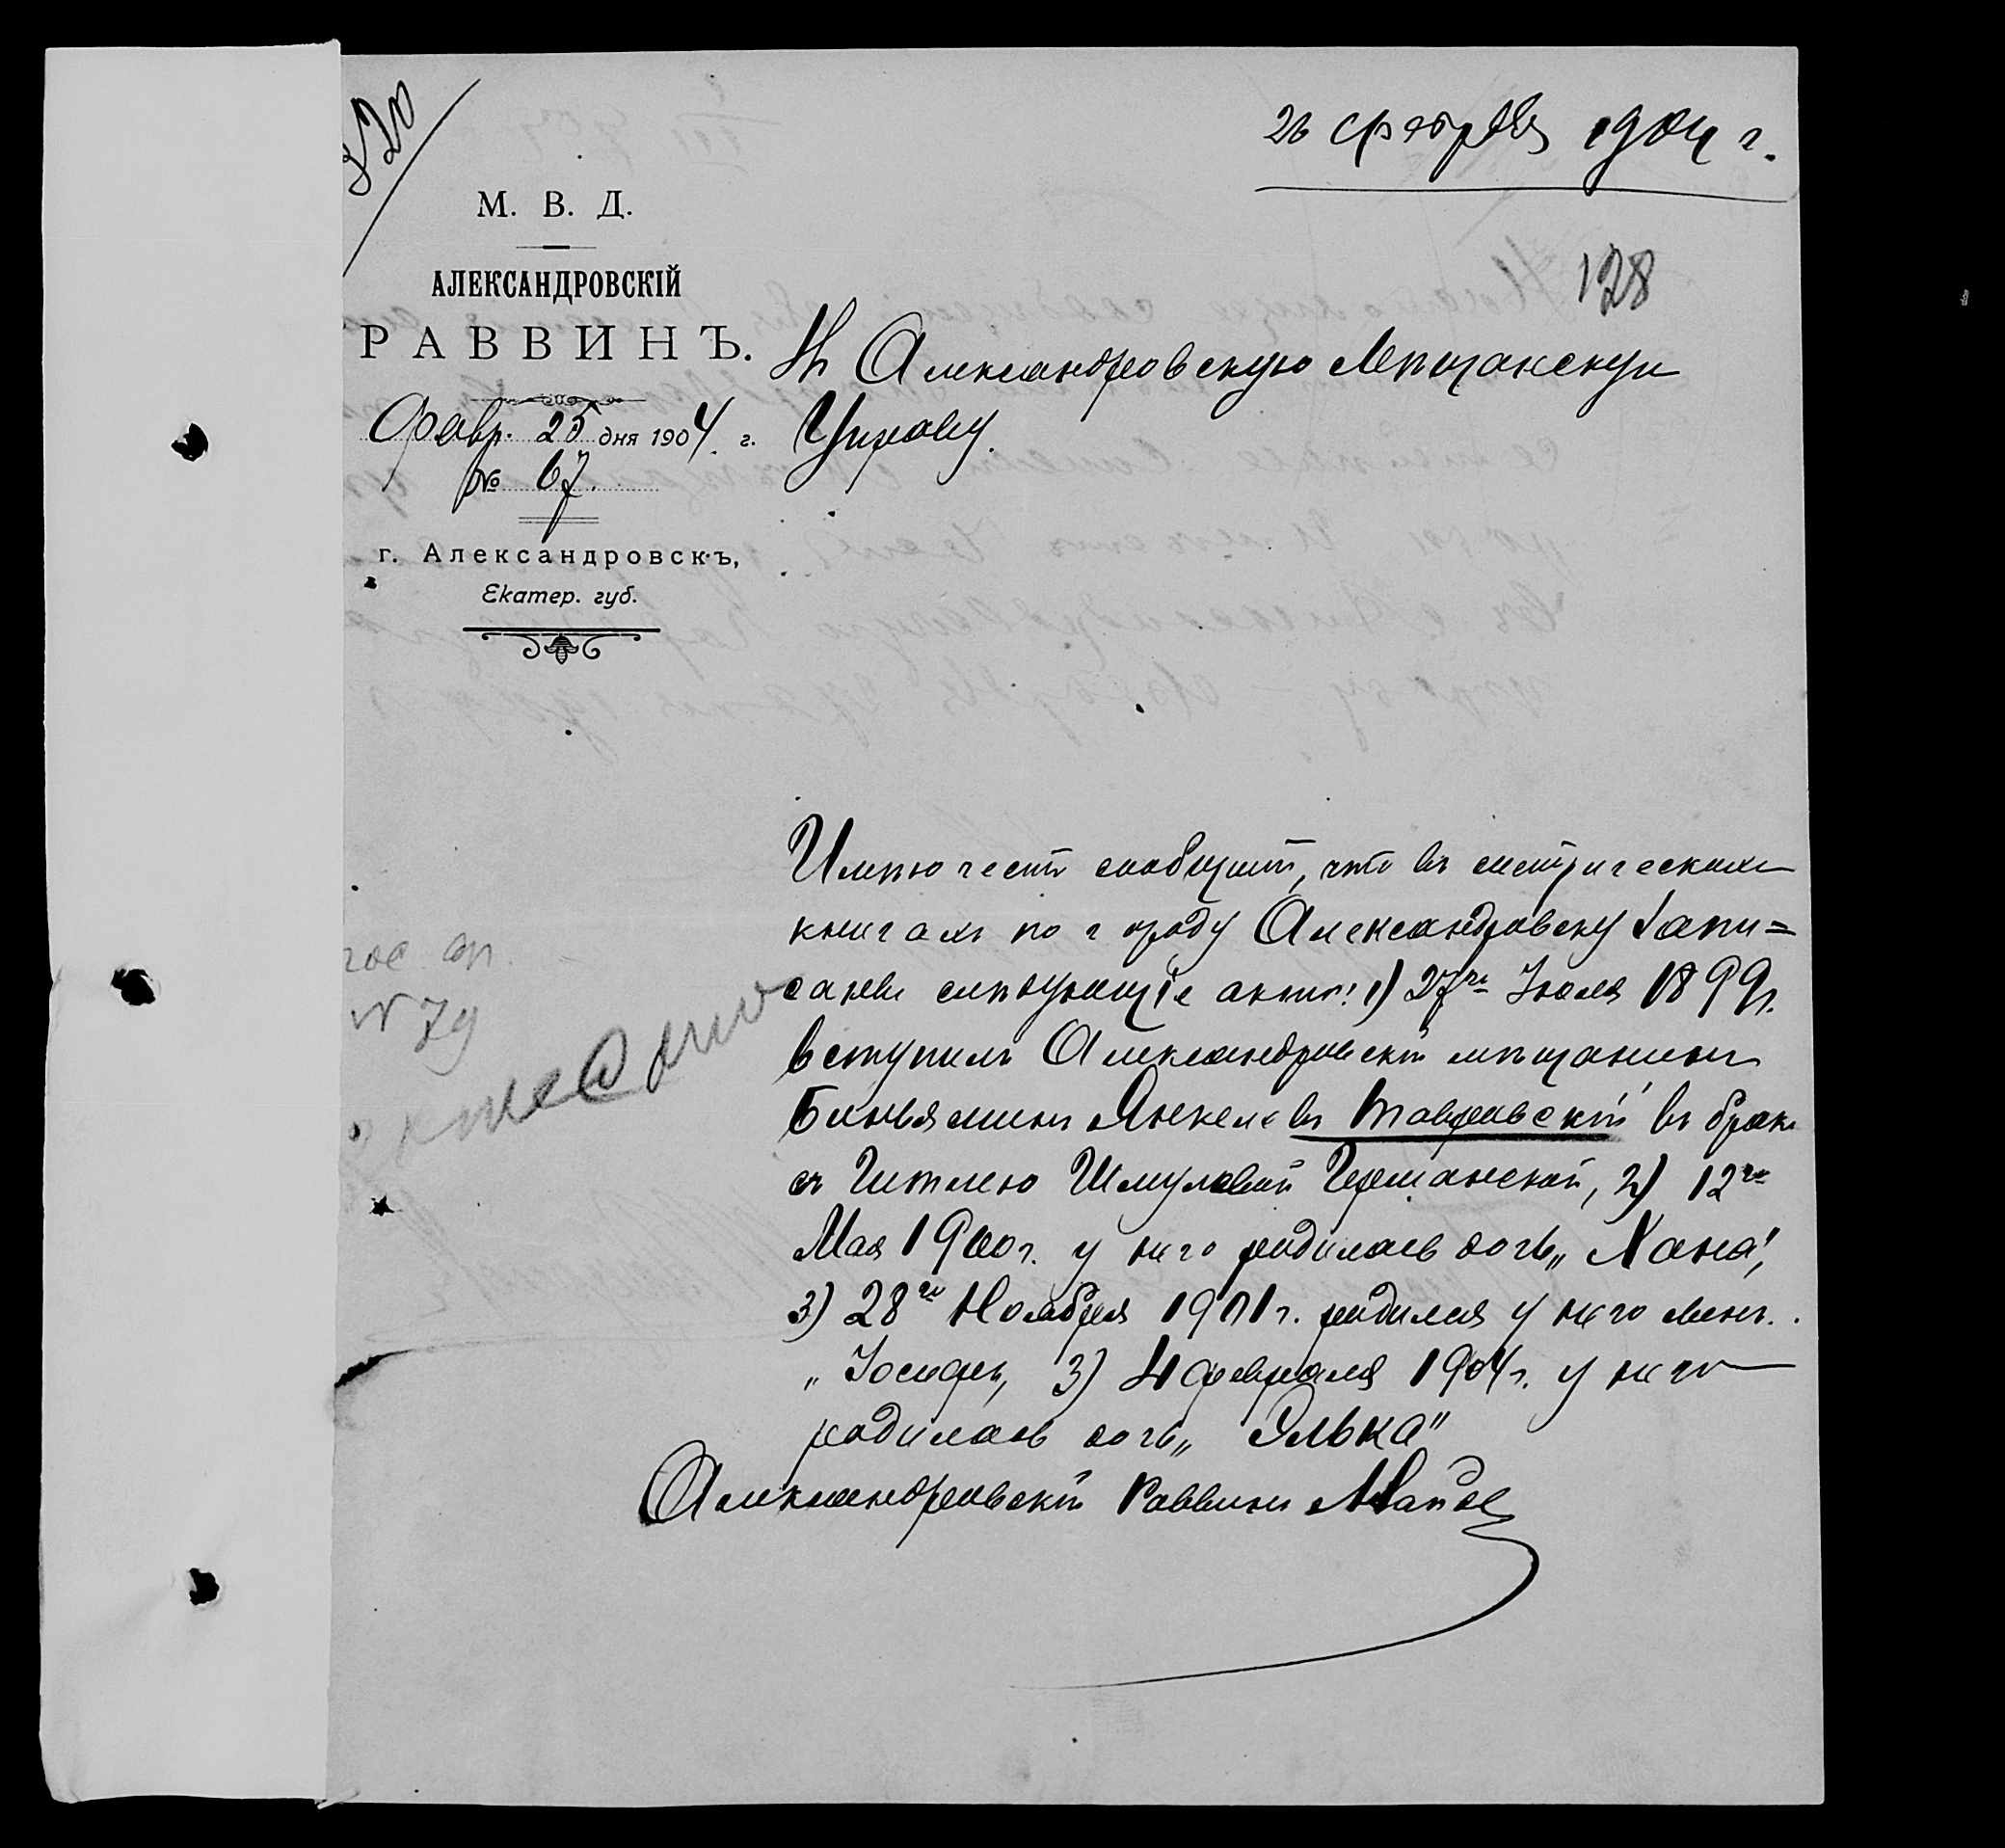 320
26 февраля 1904 г.
М. В. Д.
128
АЛЕКСАНДРОВСКІЙ
РАВВИНЪ.
Въ Александровскую Мѣщанскую
Февр. 25 дня 1904 г.
Управу.
№ 67.
г. Александровскъ,
Екатер. губ.
Имѣю честь сообщить, что въ метрическихъ
книгахъ по городу Александровску запи=
саны слѣдующіе акты: 1) 27го Іюля 1899г.
№ 79
вступилъ Александровскій мѣщанинъ
Биньяминъ Янкелевъ Тавровскій въ бракъ
съ Гитлею Шмулевой Германской, 2) 12го
Мая 1900г. у него родилась дочь „Хана",
3) 28го Ноября 1901г. родился у него сынъ
„Іосифъ, 3) 4 февраля 1904г. у него
родилась дочь „Элька"
Александровскій Раввинъ